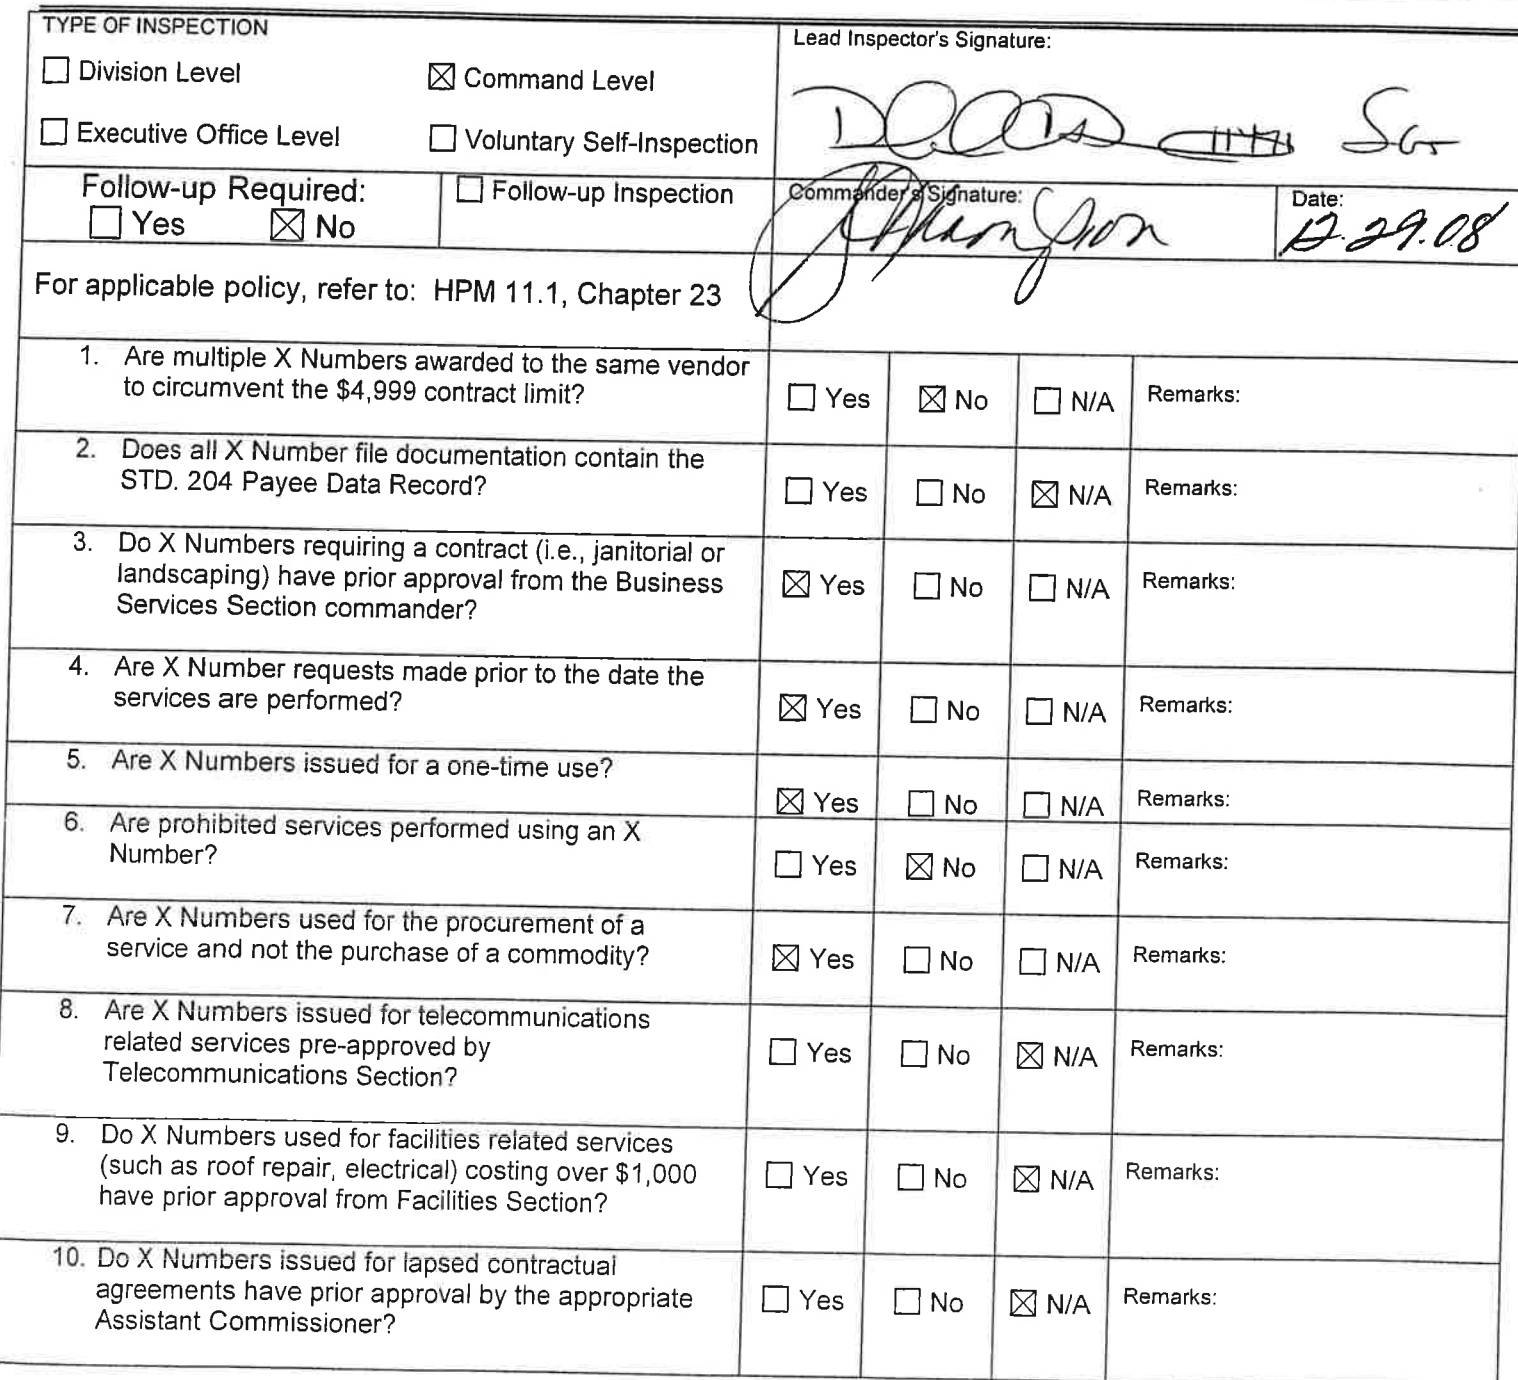 TYPE OF INSPECTION
Lead Inspector's Signature:
☐ Division Level ☒ Command Level
☐ Executive Office Level ☐ Voluntary Self-Inspection
Sgt
Follow-up Required:
☐ Yes ☒ No
☐ Follow-up Inspection
Commander's Signature:
Date:
12.29.08
For applicable policy, refer to: HPM 11.1, Chapter 23
1. Are multiple X Numbers awarded to the same vendor
to circumvent the $4,999 contract limit?
☐ Yes ☒ No ☐ N/A Remarks:
2. Does all X Number file documentation contain the
STD. 204 Payee Data Record?
☐ Yes ☐ No ☒ N/A Remarks:
3. Do X Numbers requiring a contract (i.e., janitorial or
landscaping) have prior approval from the Business
Services Section commander?
☒ Yes ☐ No ☐ N/A Remarks:
4. Are X Number requests made prior to the date the
services are performed?
☒ Yes ☐ No ☐ N/A Remarks:
5. Are X Numbers issued for a one-time use?
☒ Yes ☐ No ☐ N/A Remarks:
6. Are prohibited services performed using an X
Number?
☐ Yes ☒ No ☐ N/A Remarks:
7. Are X Numbers used for the procurement of a
service and not the purchase of a commodity?
☒ Yes ☐ No ☐ N/A Remarks:
8. Are X Numbers issued for telecommunications
related services pre-approved by
Telecommunications Section?
☐ Yes ☐ No ☒ N/A Remarks:
9. Do X Numbers used for facilities related services
(such as roof repair, electrical) costing over $1,000
have prior approval from Facilities Section?
☐ Yes ☐ No ☒ N/A Remarks:
10. Do X Numbers issued for lapsed contractual
agreements have prior approval by the appropriate
Assistant Commissioner?
☐ Yes ☐ No ☒ N/A Remarks: